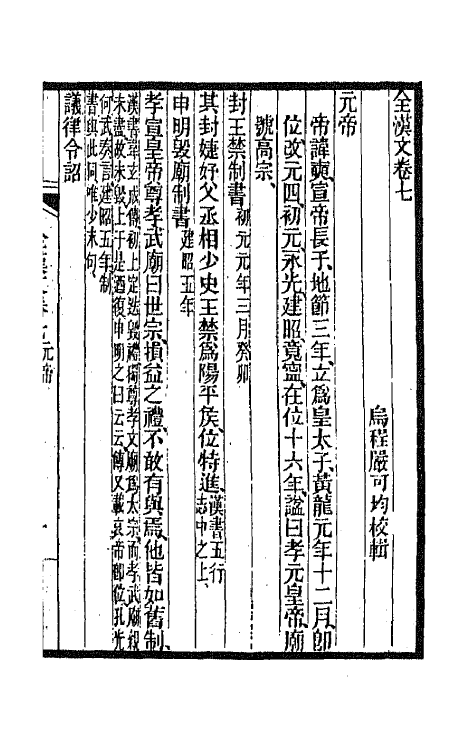 全漢文卷七
烏程嚴可均校輯
元帝
帝諱奭宣帝長子、地節三年、立爲皇太子、黃龍元年十二月、卽
位改元四、初元、永光、建昭、竟寧、在位十六年、諡曰孝元皇帝、廟
號高宗、
封王禁制書初元元年三月癸卯
其封婕妤父丞相少史王禁爲陽平侯、位特進、漢書五行
志中之上、
申明毀廟制書建昭五年
孝宣皇帝尊孝武廟曰世宗、損益之禮、不敢有與焉、他皆如舊制、
漢書韋玄成傳初上定迭毀禮獨尊孝文廟爲太宗而孝武廟親
未盡故未毀上于是迺復申明之曰云云傳又載哀帝卽位孔光
何武奏言建昭五年制
書與此同唯少末句、
議律令詔
全漢文卷七 元帝
一